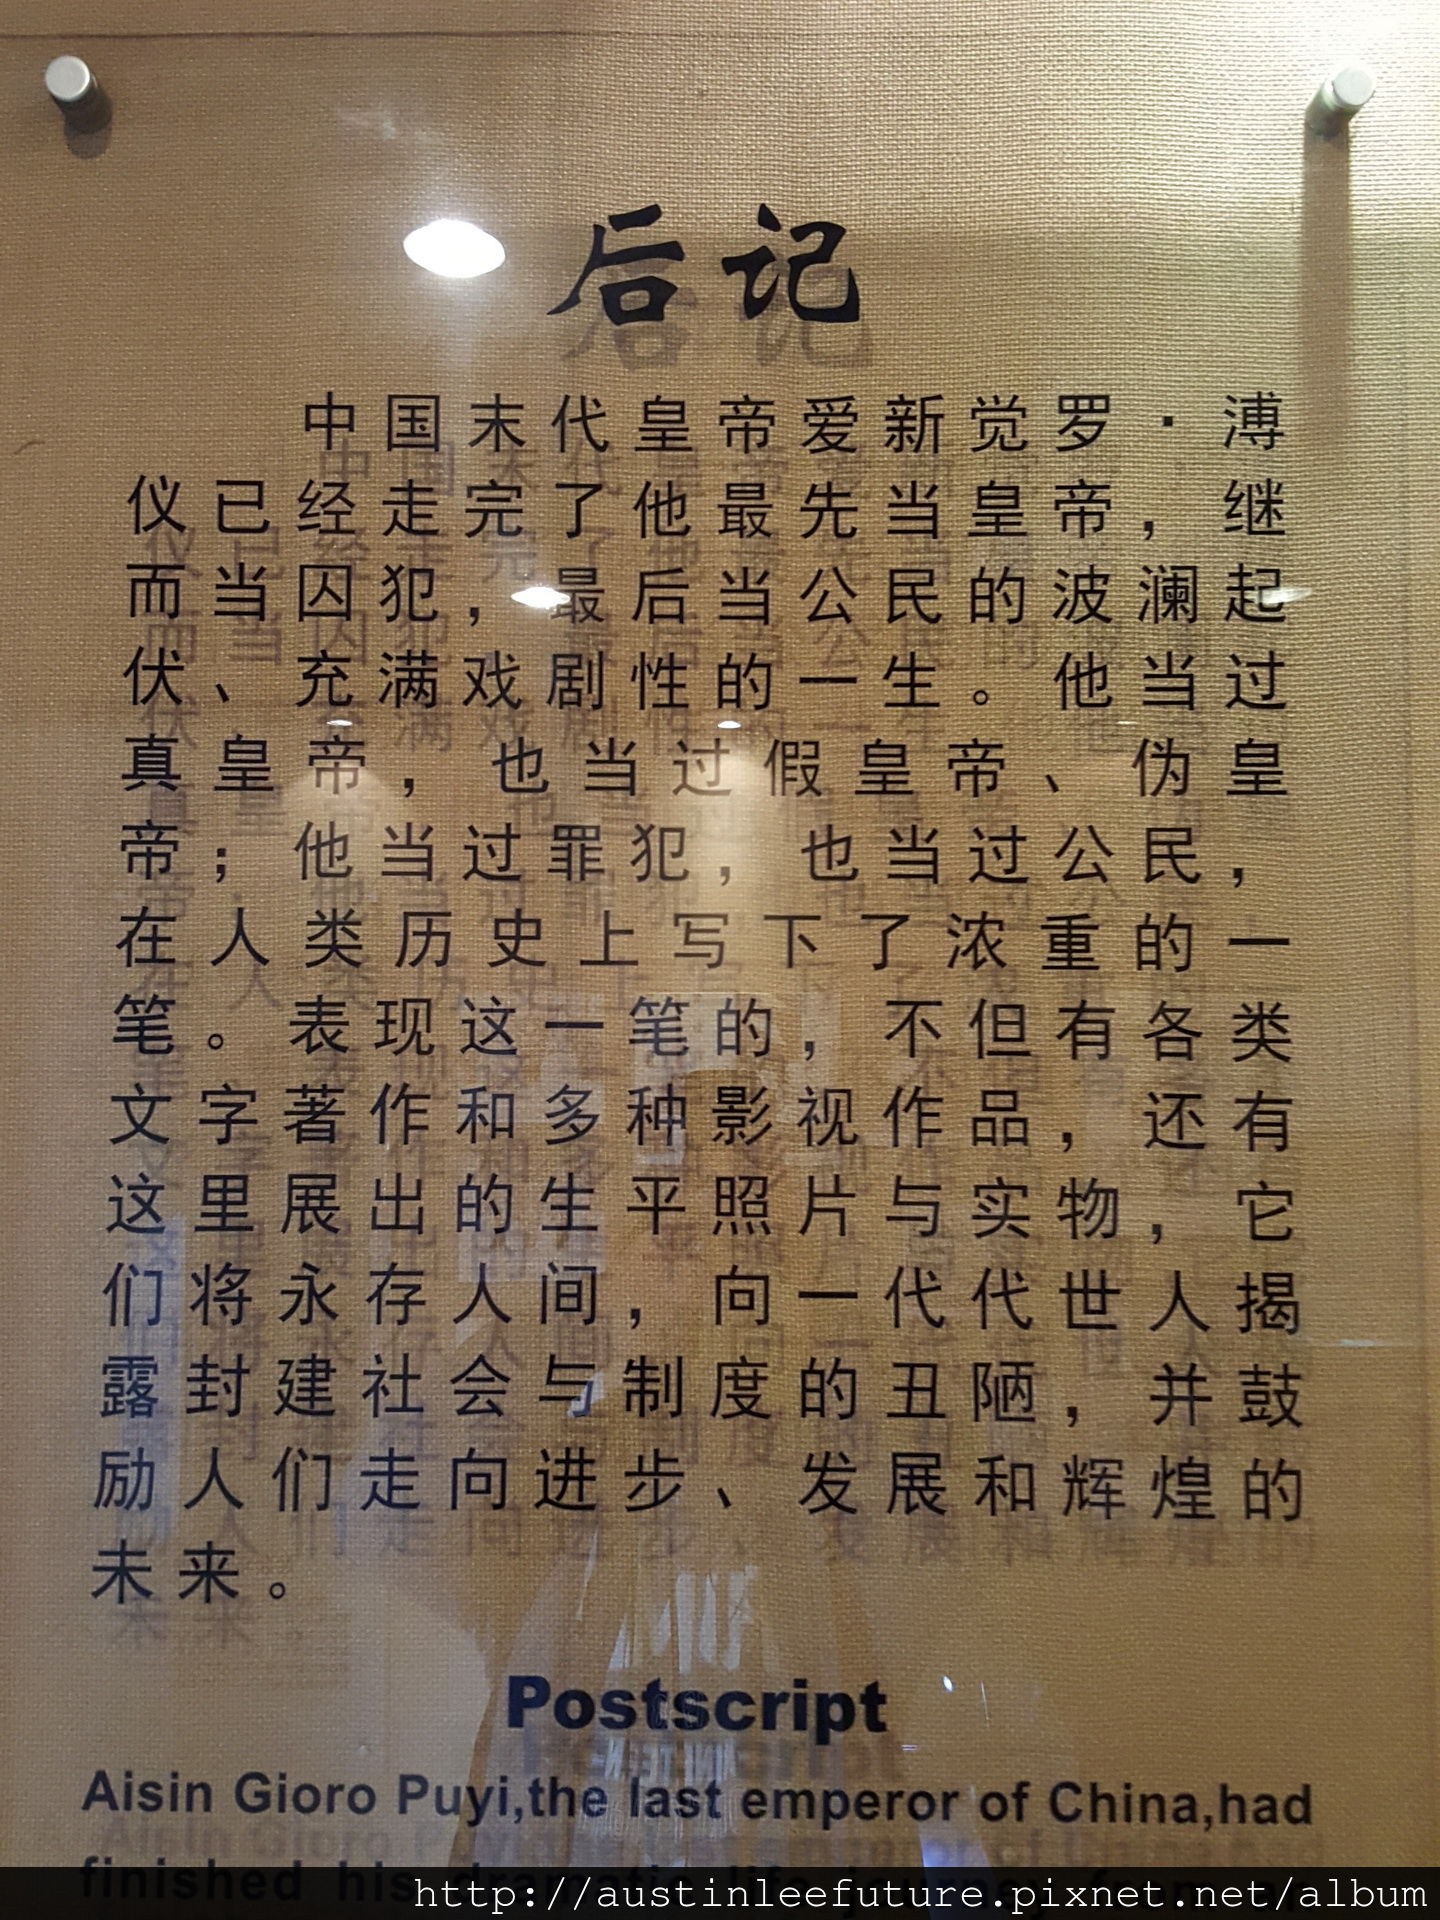 后记
中国末代皇帝爱新觉罗·溥
仪已经走完了他最先当皇帝，继
而当囚犯，最后当公民的波澜起
伏、充满戏剧性的一生。他当过
真皇帝，也当过假皇帝、伪皇
帝；他当过罪犯，也当过公民，
在人类历史上写下了浓重的一
笔。表现这一笔的，不但有各类
文字著作和多种影视作品，还有
这里展出的生平照片与实物，它
们将永存人间，向一代代世人揭
露封建社会与制度的丑陋，并鼓
励人们走向进步、发展和辉煌的
未来。
Postscript
Aisin Gioro Puyi,the last emperor of China,had
finished his dramatic life
http://austinleefuture.pixnet.net/album